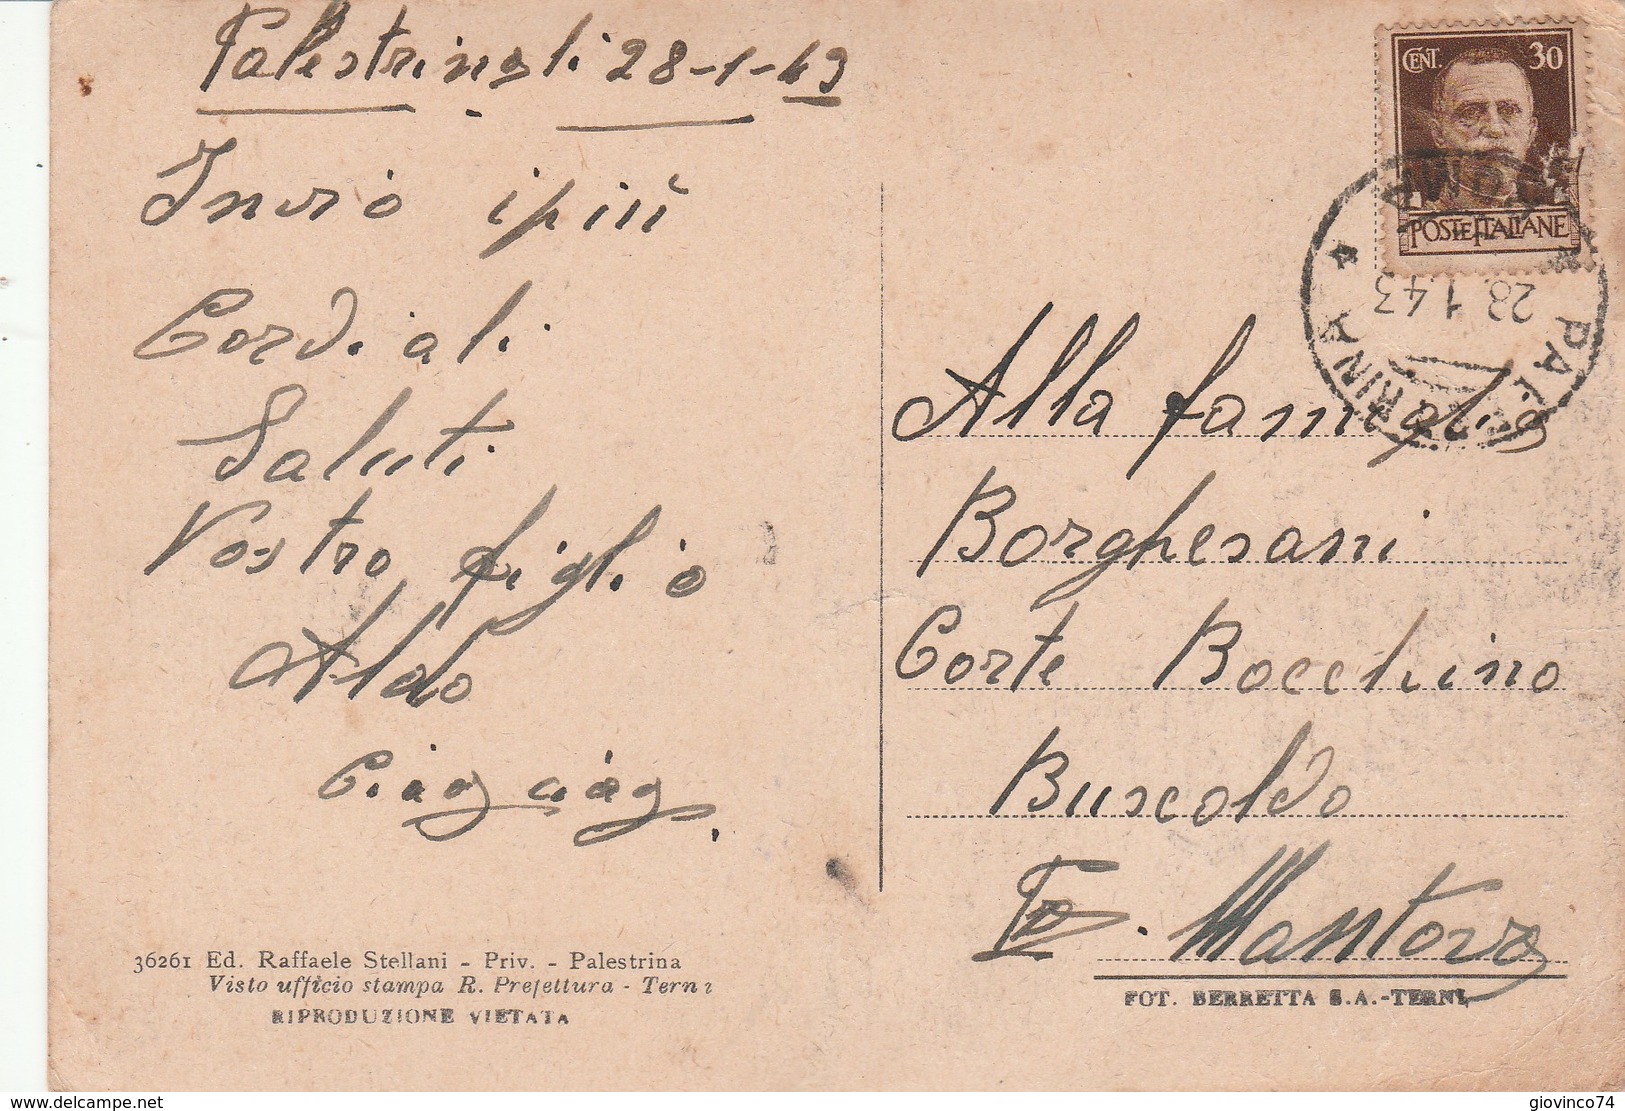 Palestrina li 28-1-43
Invio i più
Cordiali
Saluti
Vostro figlio
Aldo
Ciao ciao
36261 Ed. Raffaele Stellani - Priv. - Palestrina
Visto ufficio stampa R. Prefettura - Terni
RIPRODUZIONE VIETATA
CENT. 30
POSTE ITALIANE
28.1.43
Alla famiglia
Borghesani
Corte Bocchino
Buscoldo
Mantova
FOT. BERRETTA S.A.-TERNI
delcampe.net
giovinco74